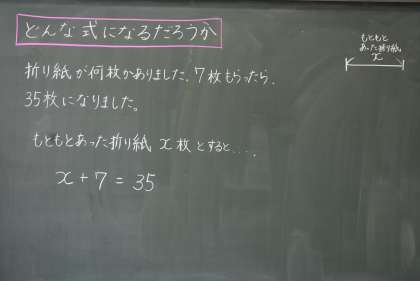 どんな式になるだろうか
折り紙が何枚かありました。7枚もらったら、
35枚になりました。
もともとあった折り紙 x枚とすると....
x+7=35
もともと
あった折り紙
x